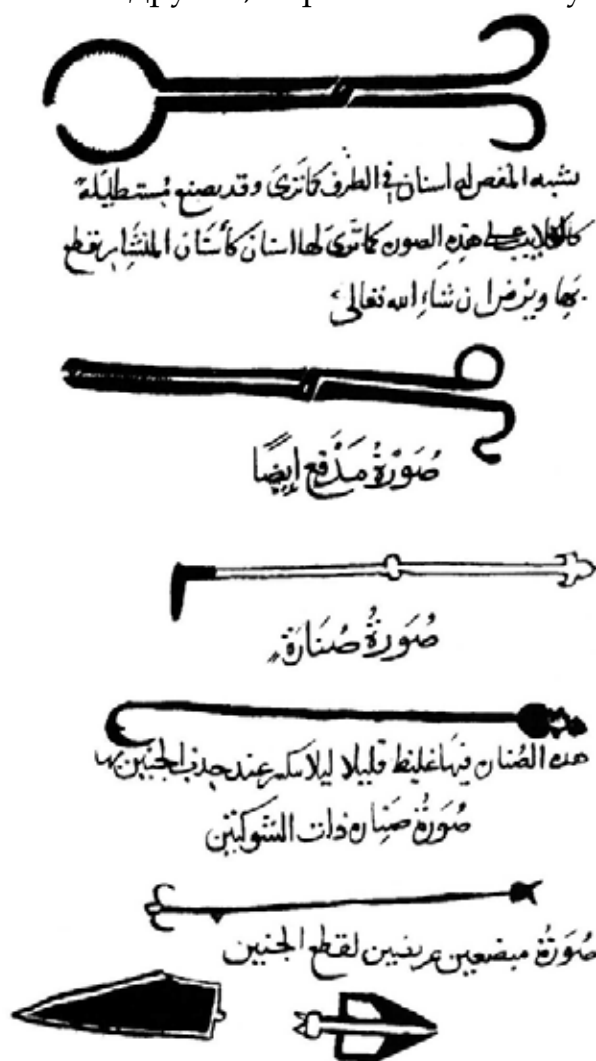 يشبه المقص له اسنان في الطرف كما ترى وقد يصنع مستطيلة
كالكلاليب على هذه الصورة كما ترى لها اسنان كأسنان المنشار يقطع
بها ويرض ان شاء الله تعالى
صُورَةُ مَدْفَع ايضًا
صُورَةُ صُنَارَة
هذه الصنارة فيها غلظ قليلا ليلا تنكسر عند جذب الجنين بها
صُورَةُ صنارة ذات الشوكتين
صُورَةُ مبضعين عريضين لقطع الجنين